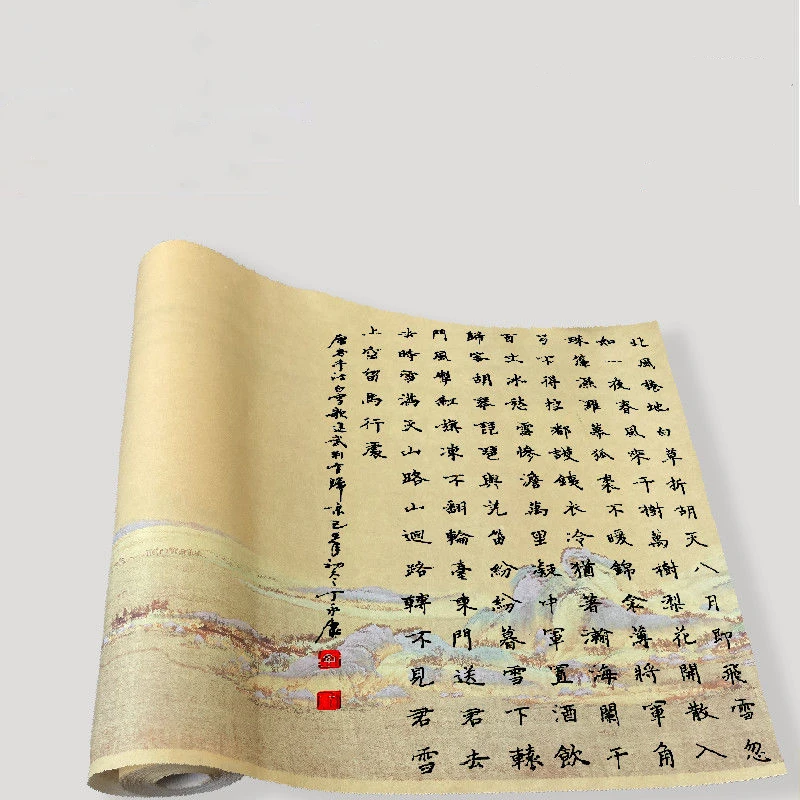 北風捲地白草折胡天八月即飛雪忽
如一夜春風來千樹萬樹梨花開散入
珠簾濕羅幕狐裘不暖錦衾薄將軍角
弓不得控都護銕衣冷猶著瀚海闌干
百丈冰愁雲慘澹萬里凝中軍置酒飲
歸客胡琴琵琶與羌笛紛紛暮雪下轅
門風掣紅旗凍不翻輪臺東門送君去
去時雪滿天山路山迴路轉不見君雪
上空留馬行處
唐岑參詩白雪歌送武判官歸京己亥初冬丁永康